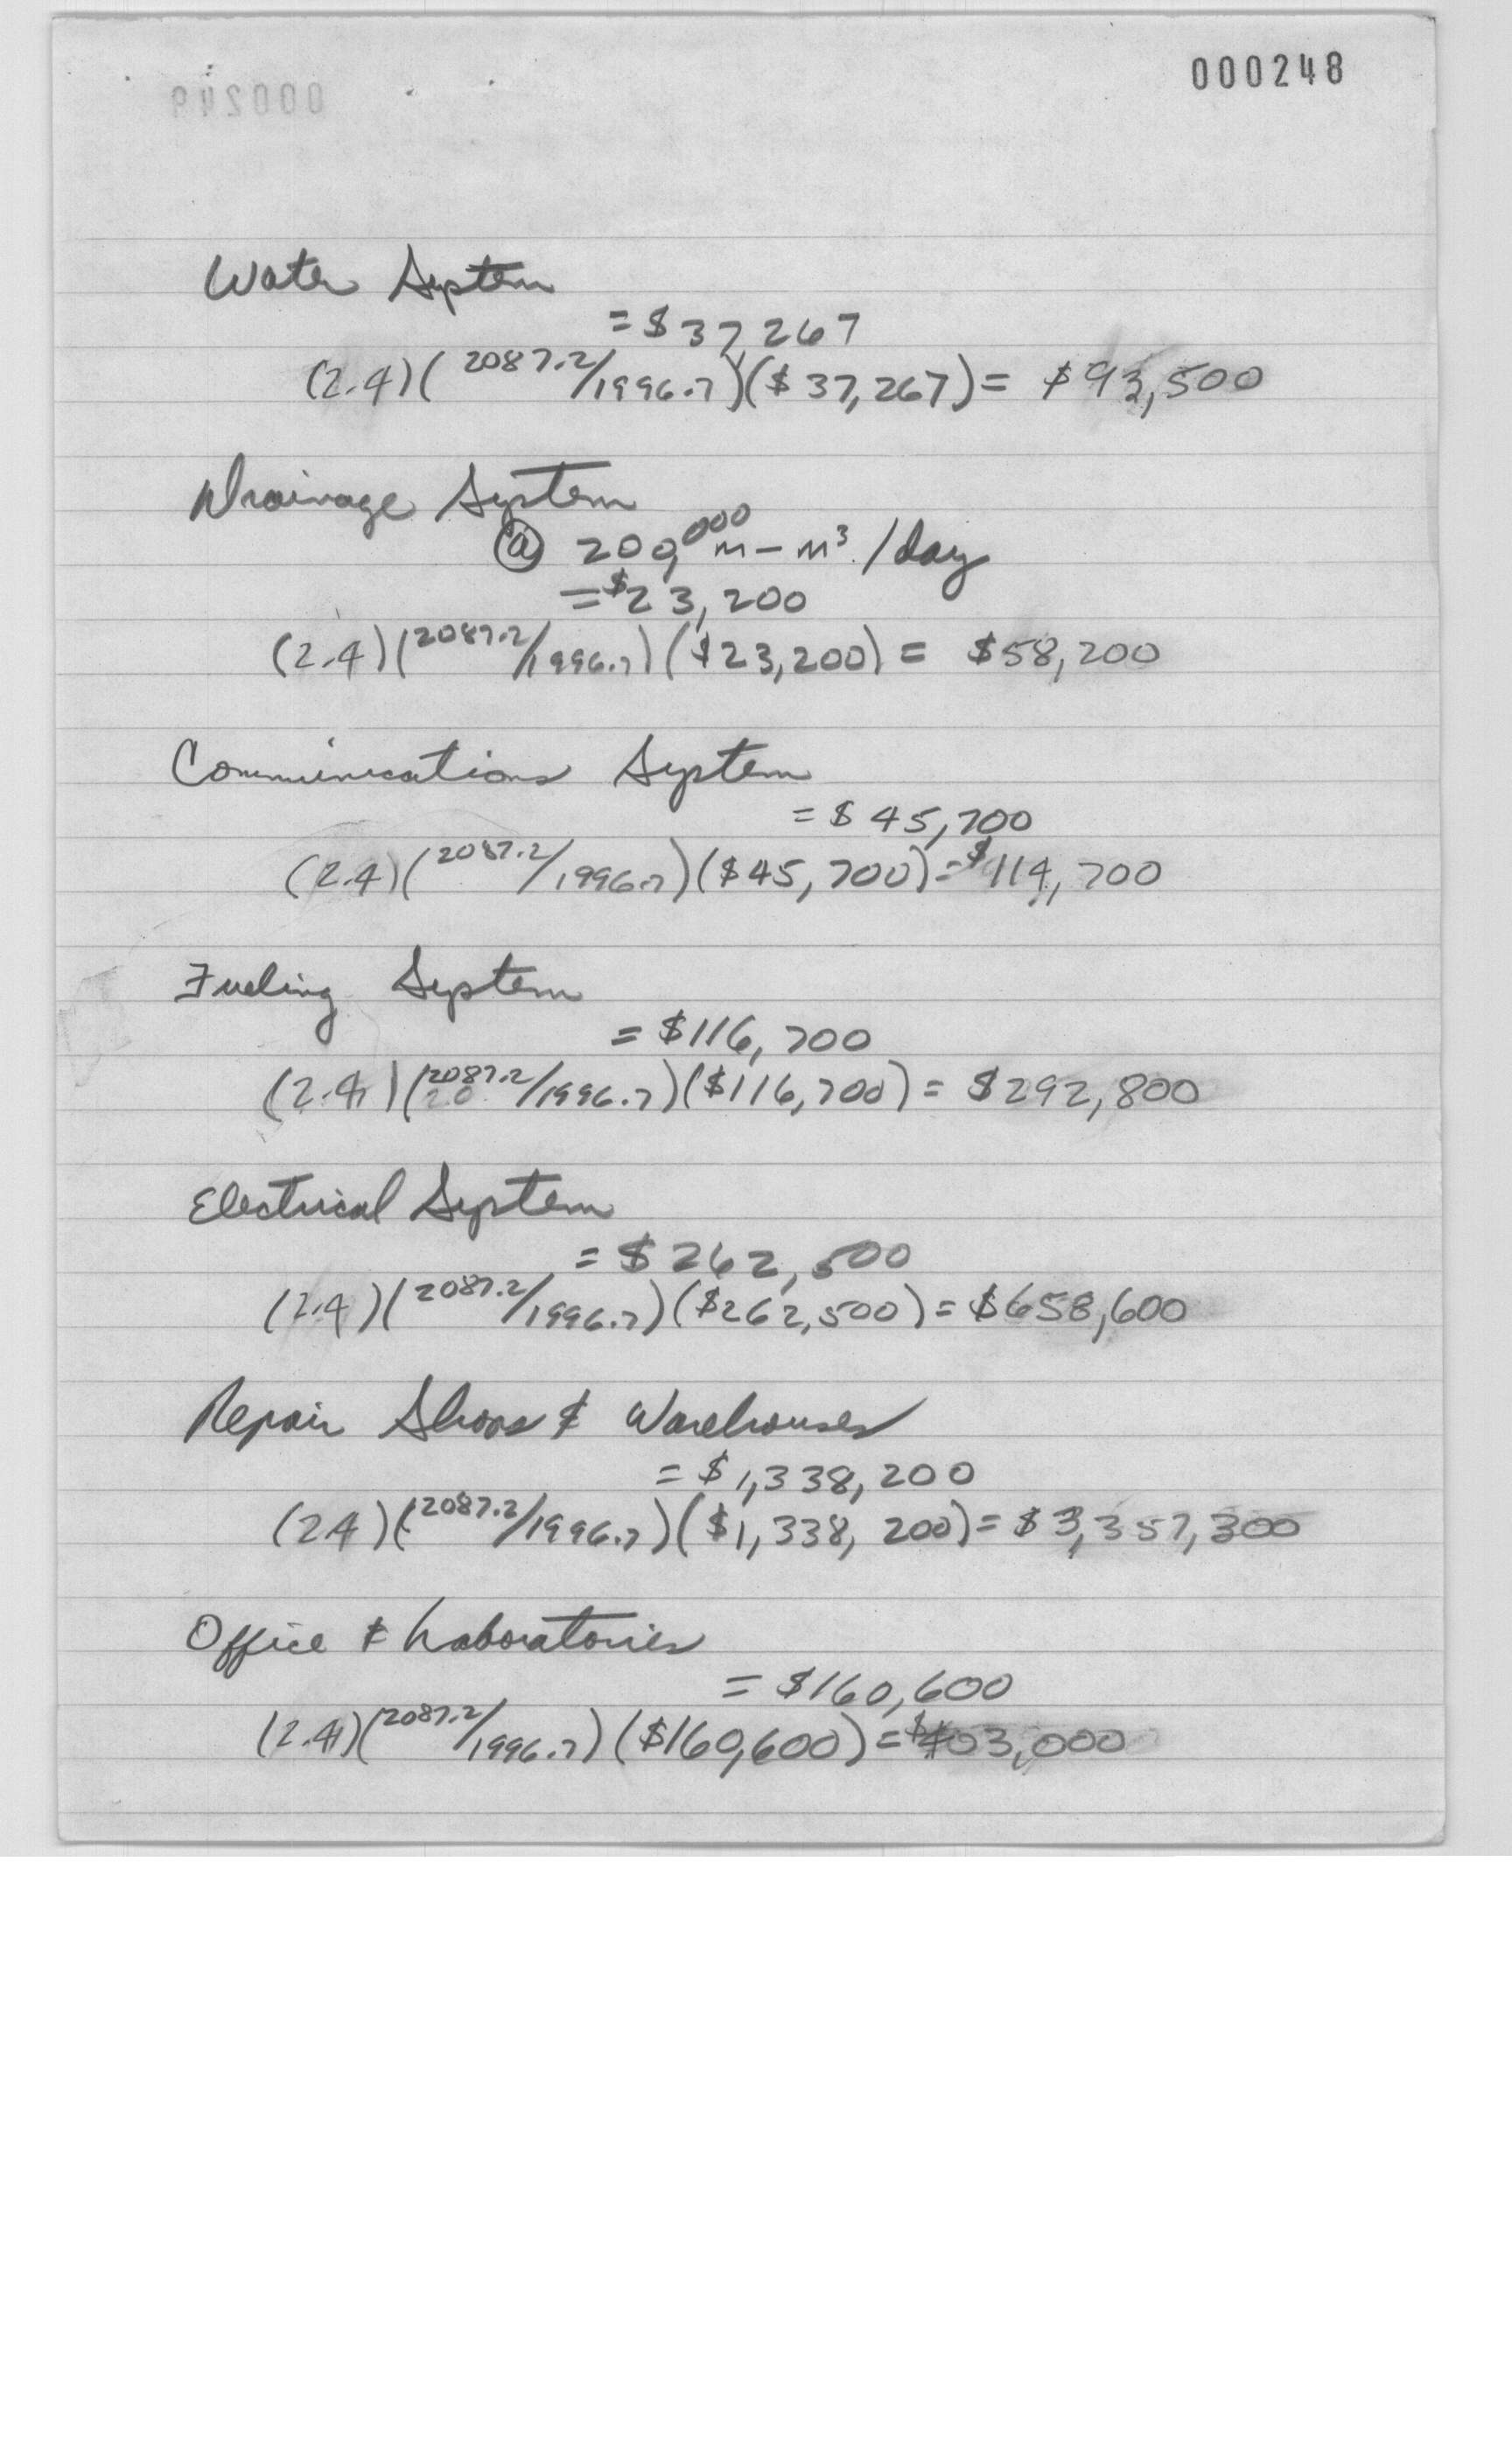 000248
000249
Water System
= $37,267
(2.4)(2087.2/1996.7)($37,267) = $93,500
Drainage System
@ 200,000 m-m³/day
= $23,200
(2.4)(2087.2/1996.7)($23,200) = $58,200
Communications System
= $45,700
(2.4)(2087.2/1996.7)($45,700) = $114,700
Fueling System
= $116,700
(2.4)(2087.2/1996.7)($116,700) = $292,800
Electrical System
= $262,500
(2.4)(2087.2/1996.7)($262,500) = $658,600
Repair Shops & Warehouses
= $1,338,200
(2.4)(2087.2/1996.7)($1,338,200) = $3,357,300
Office & Laboratories
= $160,600
(2.4)(2087.2/1996.7)($160,600) = $403,000